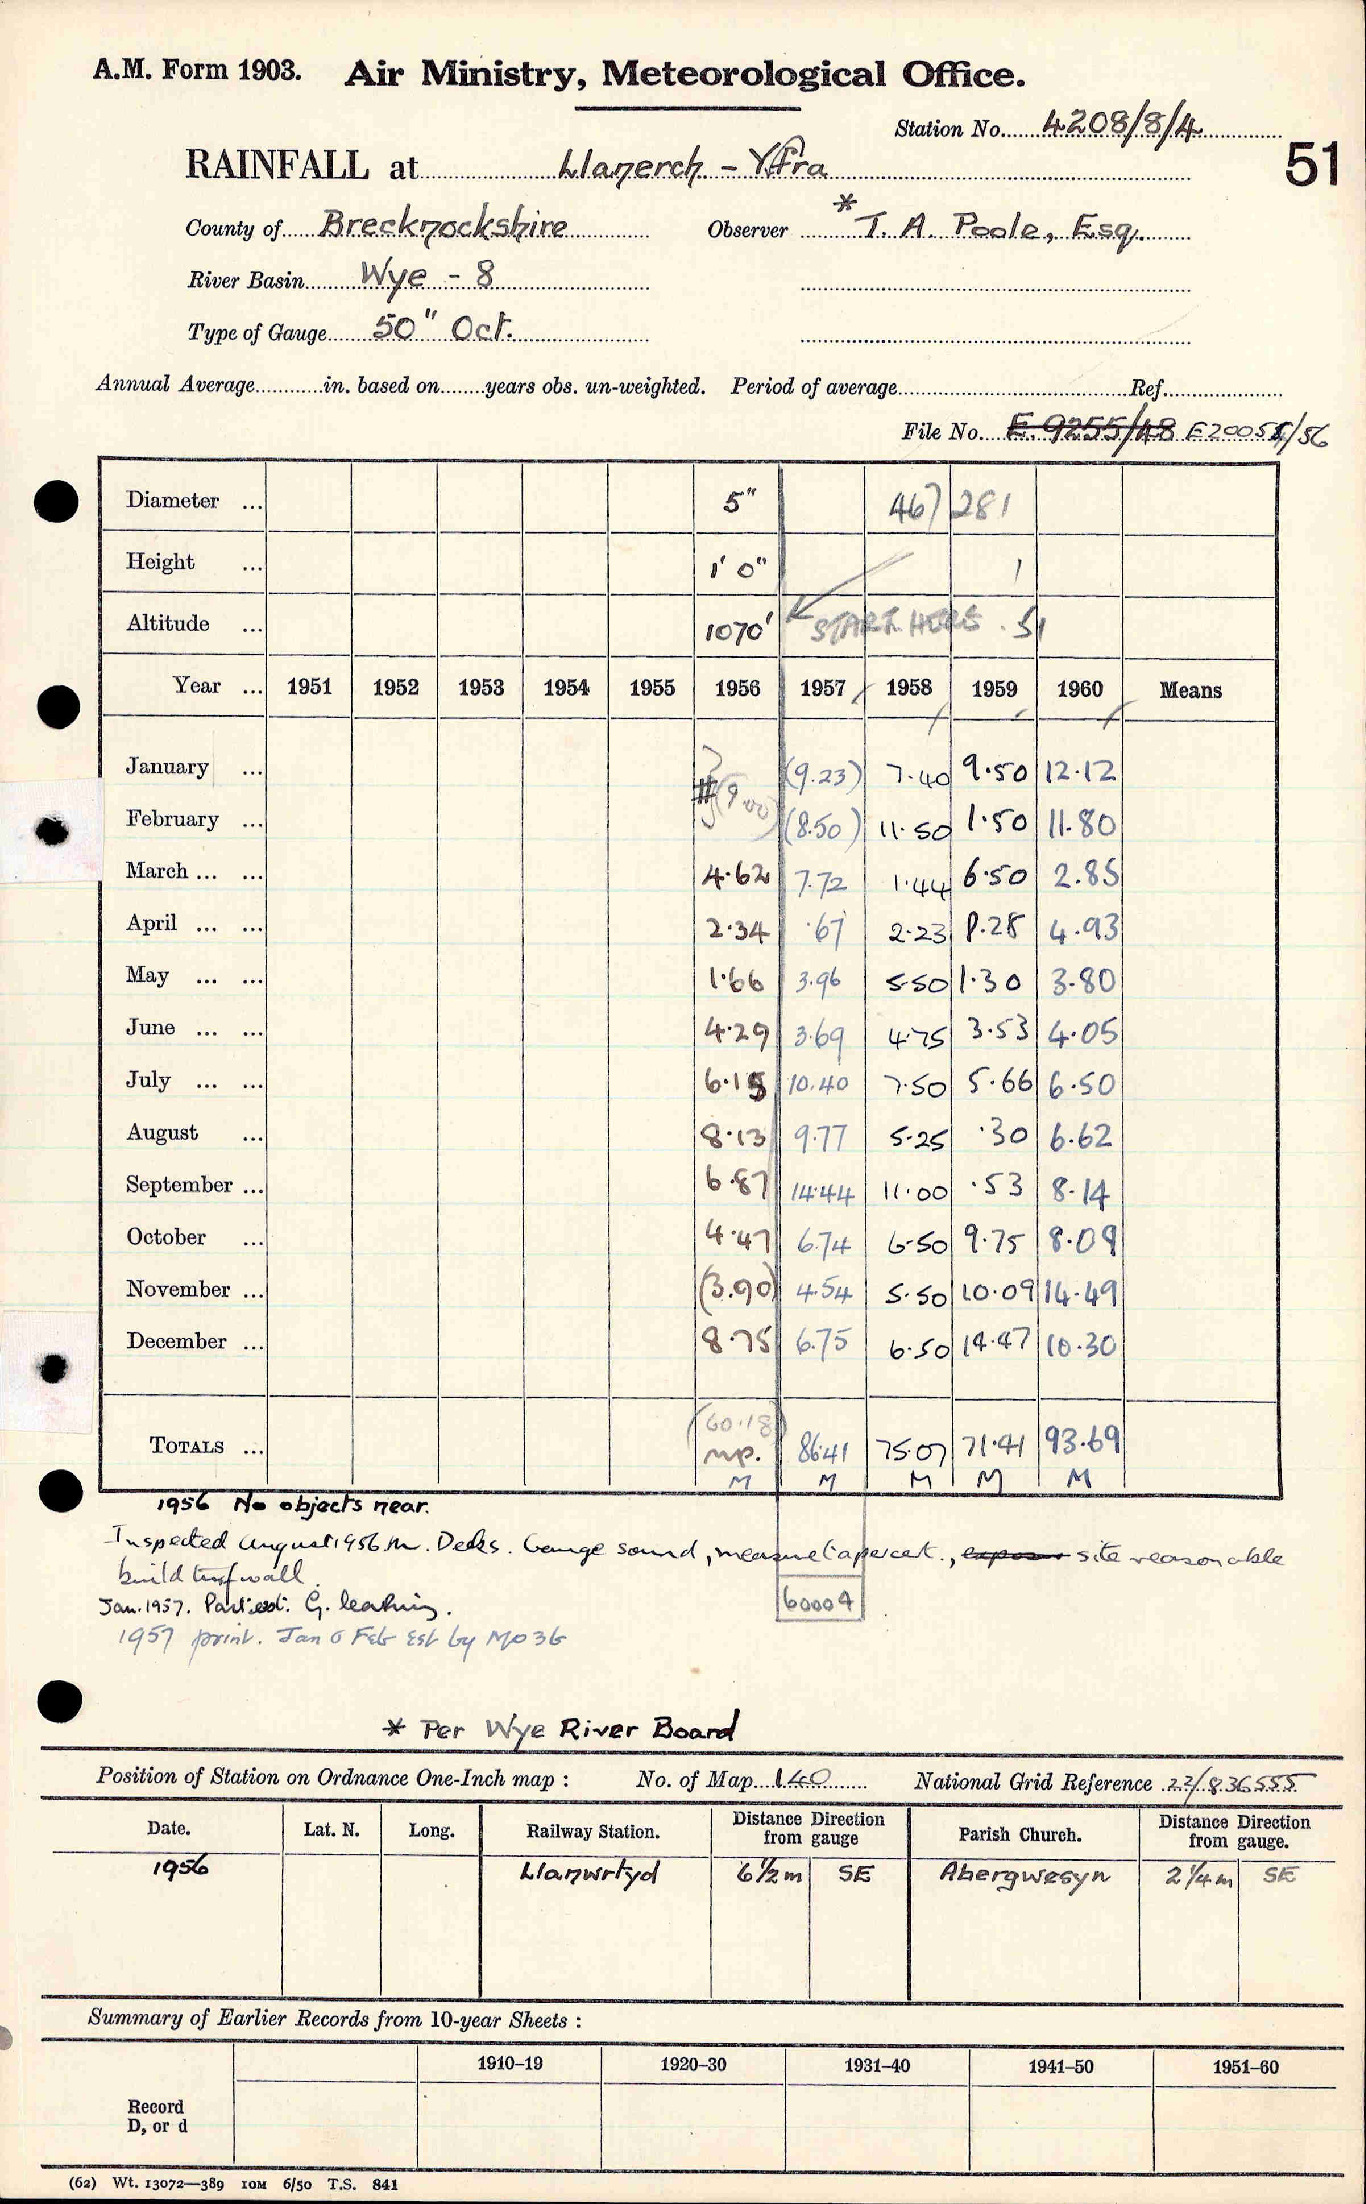 A.M. Form 1903. Air Ministry, Meteorological Office.
Station No. 4208/8/4
51
RAINFALL at Llanerch - Yrfa
County of Brecknockshire Observer * T. A. Poole, Esq.
River Basin Wye - 8
Type of Gauge 50" Oct.
Annual Average in. based on years obs. un-weighted. Period of average Ref.
File No. E. 9255/48 E20055/56
Diameter ... 5" 467281
Height ... 1' 0" 1
Altitude ... 1070' START HERE . 51
Year ... 1951 1952 1953 1954 1955 1956 1957 1958 1959 1960 Means
January ... # (9.00) (9.23) 7.40 9.50 12.12
February ... (8.50) 11.50 1.50 11.80
March ... ... 4.62 7.72 1.44 6.50 2.85
April ... ... 2.34 .67 2.23 8.28 4.93
May ... ... 1.66 3.96 5.50 1.30 3.80
June ... ... 4.29 3.69 4.75 3.53 4.05
July ... ... 6.15 10.40 7.50 5.66 6.50
August ... 8.13 9.77 5.25 .30 6.62
September ... 6.87 14.44 11.00 .53 8.14
October ... 4.47 6.74 6.50 9.75 8.09
November ... (3.90) 4.54 5.50 10.09 14.49
December ... 8.75 6.75 6.50 14.47 10.30
TOTALS ... (60.18) 86.41 75.07 71.41 93.69
mp.
M M M M M
1956 No objects near.
Inspected August 1956 Mr. Deeks. Gauge sound, site reasonable
build turf wall.
Jan. 1957. Part est. G. leaking.
60009
1957 print. Jan & Feb Est by MO3b
* Per Wye River Board
Position of Station on Ordnance One-Inch map : No. of Map 140 National Grid Reference 22/836555
Date. Lat. N. Long. Railway Station. Distance Direction from gauge Parish Church. Distance Direction from gauge.
1956 Llanwrtyd 6 1/2 m SE Abergwesyn 2 1/4 m SE
Summary of Earlier Records from 10-year Sheets :
1910–19 1920–30 1931–40 1941–50 1951–60
Record
D, or d
(62) Wt. 13072—389 10M 6/50 T.S. 841